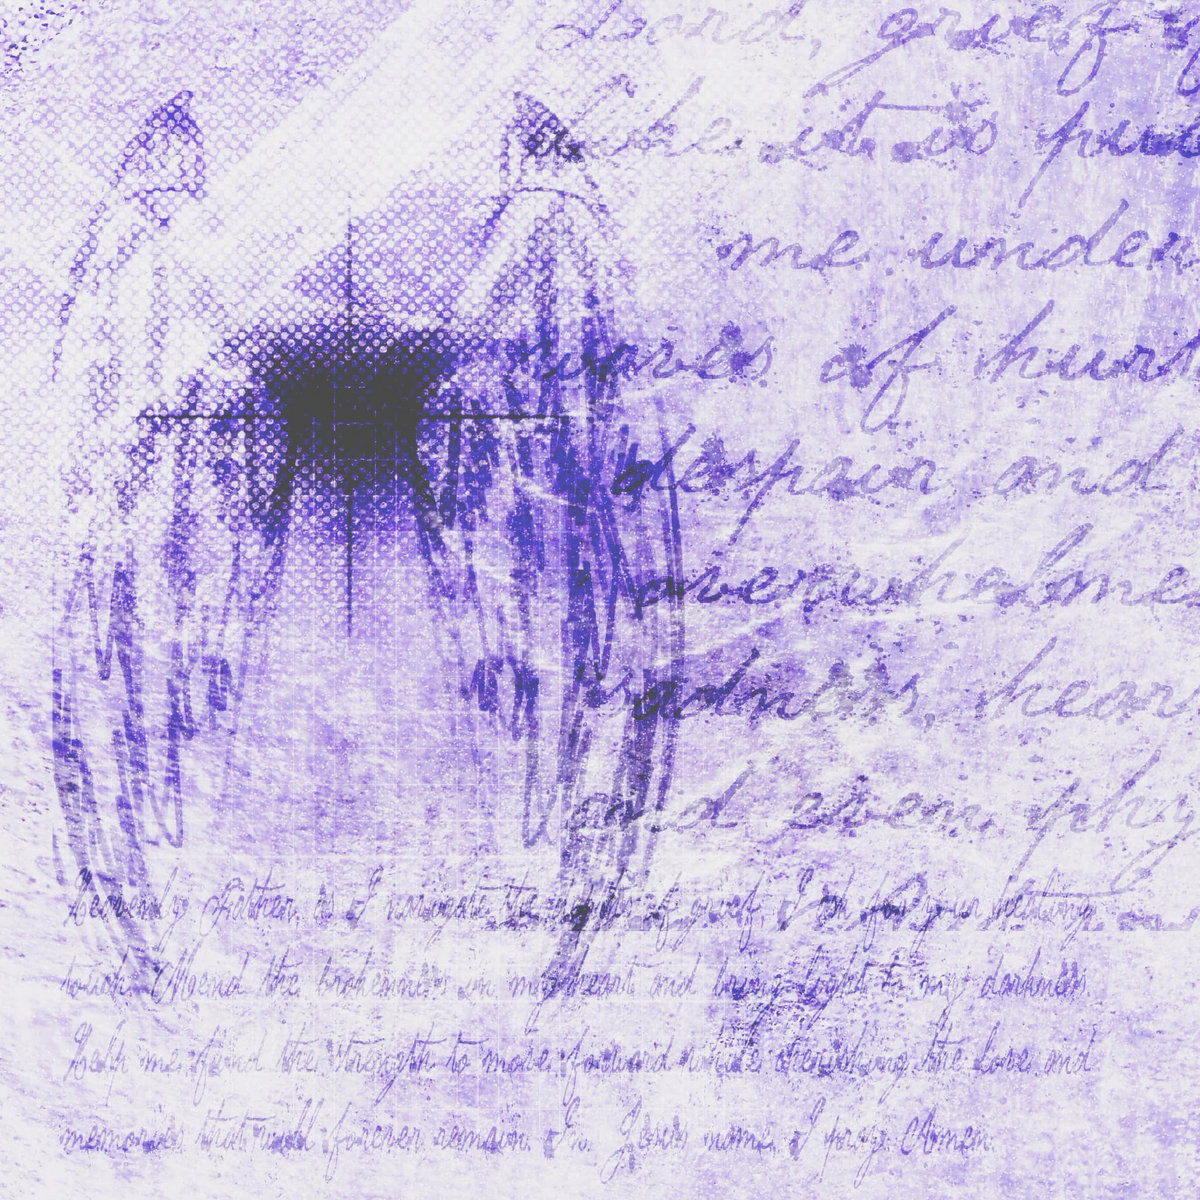 Lord, grief
like it is
me under
waves of
despair, and
overwhelme
sadness, hear
and even phy
Heavenly Father, as I navigate the depths of grief, I ask for your
touch. Mend the brokenness in my heart and bring light to my darkness.
Help me find the strength to move forward while cherishing the love and
memories that will forever remain. In Jesus name, I pray. Amen.